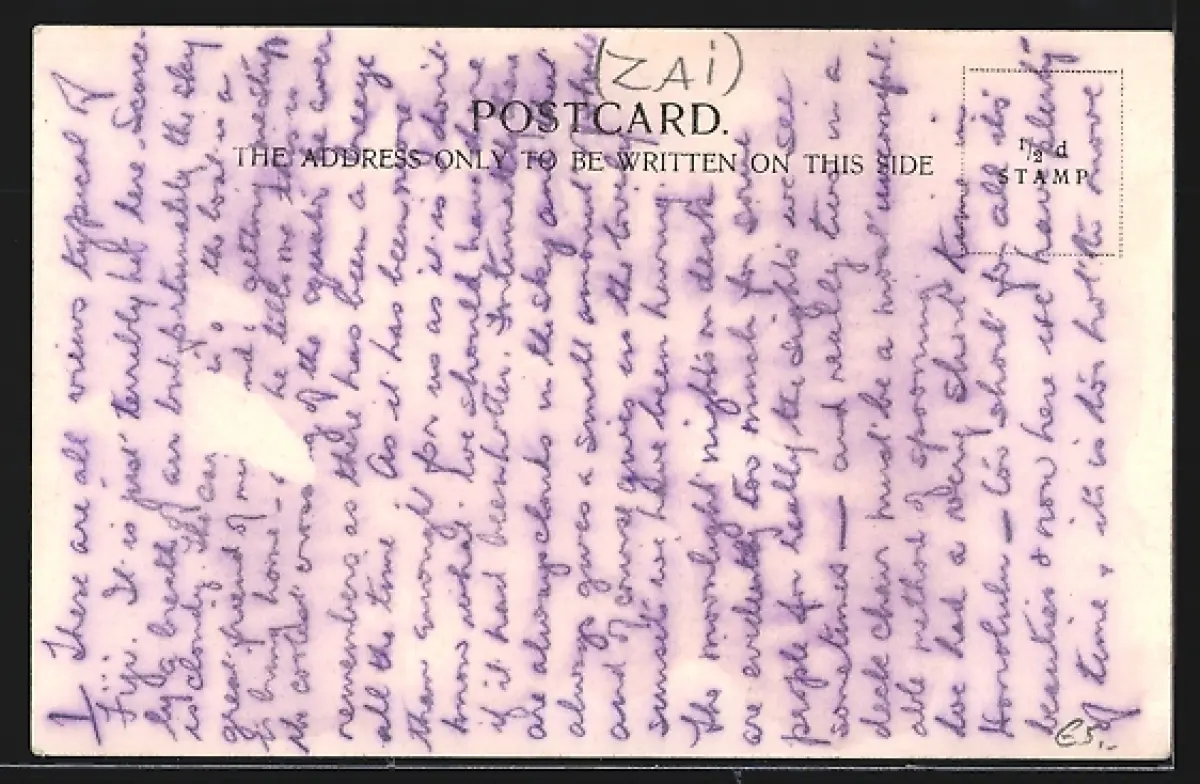 (ZAi)
POSTCARD.
THE ADDRESS ONLY TO BE WRITTEN ON THIS SIDE
1/2 d
STAMP
I These are all views typical of
Fiji. It is just terribly hot here scarce-
ly a breath of air but fortunately the sky
is cloudy. The is the host is a
great friend of & getting
to bring home - he tells me this is
the coolest crossing of the equator he ever
remembers as there has been a breeze
all the time. As it has been more
than enough for us as it is don't
know what we should have done
if it had been hotter. Fortunately there
are always clouds in the sky and that
always gives a small amount of shade
and of course gives us the lovely
sunsets we have been having
The moonlight nights on deck
are evidently too much for some
people for really the sights we see
sometimes — and really two in a
deck chair must be a most uncomfort-
able method of spooning
We had a very short time in
Honolulu — too short for all its
beauties & now here we have plenty
of time & it is too hot to move
65,-